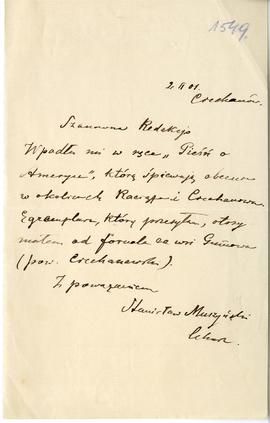 1549.
2. II 01.
Ciechanów.
Szanowna Redakcjo
Wpadła mi w ręce „Pieśń o
Ameryce", którą śpiewają obecnie
w okolicach Raciąża i Ciechanowa
Egzemplarz, który przesyłam, otrzy
małem od fornala ze wsi
(pow. Ciechanowski)
Z poważaniem
Stanisław Murzyński